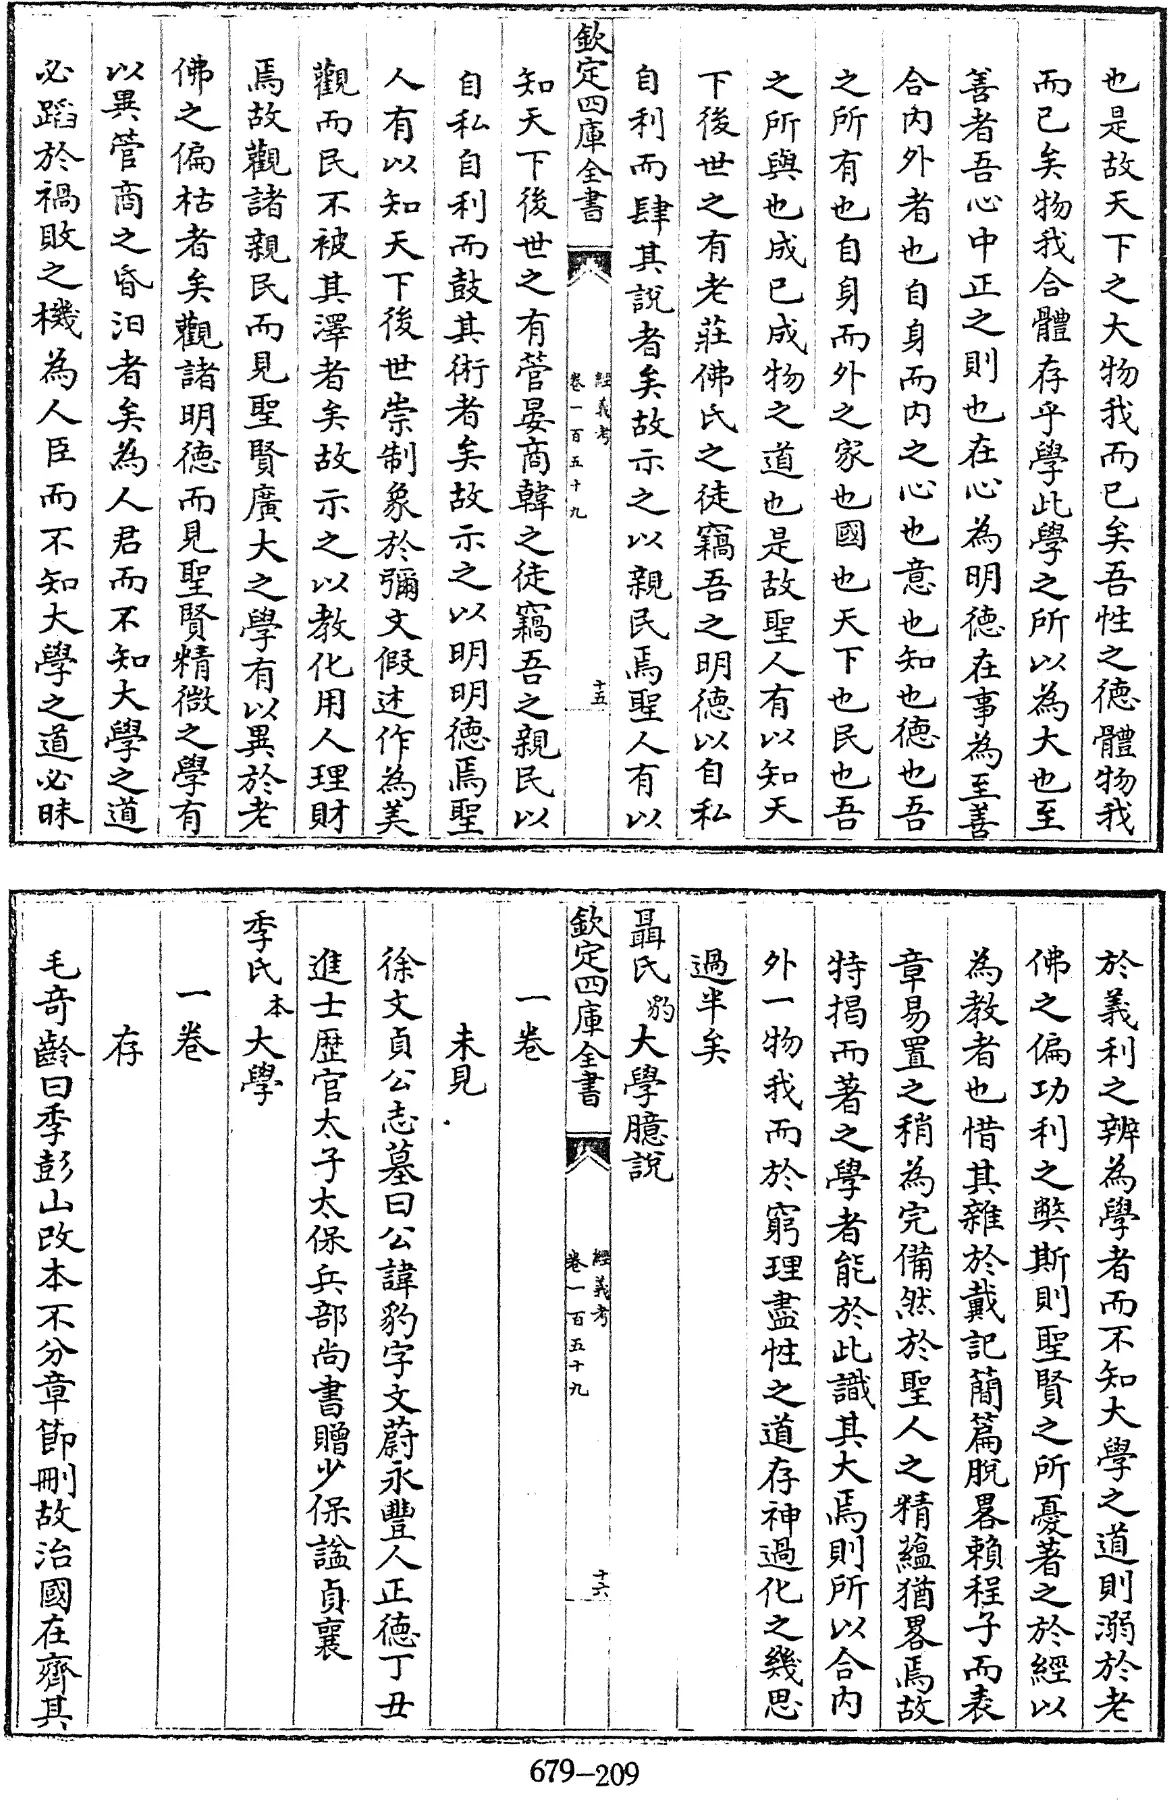 也是故天下之大物我而已矣吾性之德體物我
而已矣物我合體存乎學此學之所以為大也至
善者吾心中正之則也在心為明德在事為至善
合内外者也自身而内之心也意也知也德也吾
之所有也自身而外之家也國也天下也民也吾
之所與也成已成物之道也是故聖人有以知天
下後世之有老莊佛氏之徒竊吾之明德以自私
自利而肆其說者矣故示之以親民焉聖人有以
欽定四庫全書
經義考
卷一百五十九
十五
知天下後世之有管晏商韓之徒竊吾之親民以
自私自利而鼓其術者矣故示之以明明德焉聖
人有以知天下後世崇制象於彌文假述作為美
觀而民不被其澤者矣故示之以教化用人理財
焉故觀諸親民而見聖賢廣大之學有以異於老
佛之偏枯者矣觀諸明德而見聖賢精微之學有
以異管商之昏汨者矣為人君而不知大學之道
必蹈於禍敗之機為人臣而不知大學之道必昧
於義利之辨為學者而不知大學之道則溺於老
佛之偏功利之弊斯則聖賢之所憂著之於經以
為教者也惜其雜於戴記簡篇脫畧賴程子而表
章易置之稍為完備然於聖人之精蘊猶畧焉故
特揭而著之學者能於此識其大焉則所以合内
外一物我而於窮理盡性之道存神過化之幾思
過半矣
聶氏豹大學臆說
欽定四庫全書
經義考
卷一百五十九
十六
一卷
未見
徐文貞公志墓曰公諱豹字文蔚永豐人正德丁丑
進士歴官太子太保兵部尚書贈少保諡貞襄
季氏本大學
一卷
存
毛奇齡曰季彭山改本不分章節刪故治國在齊其
679-209